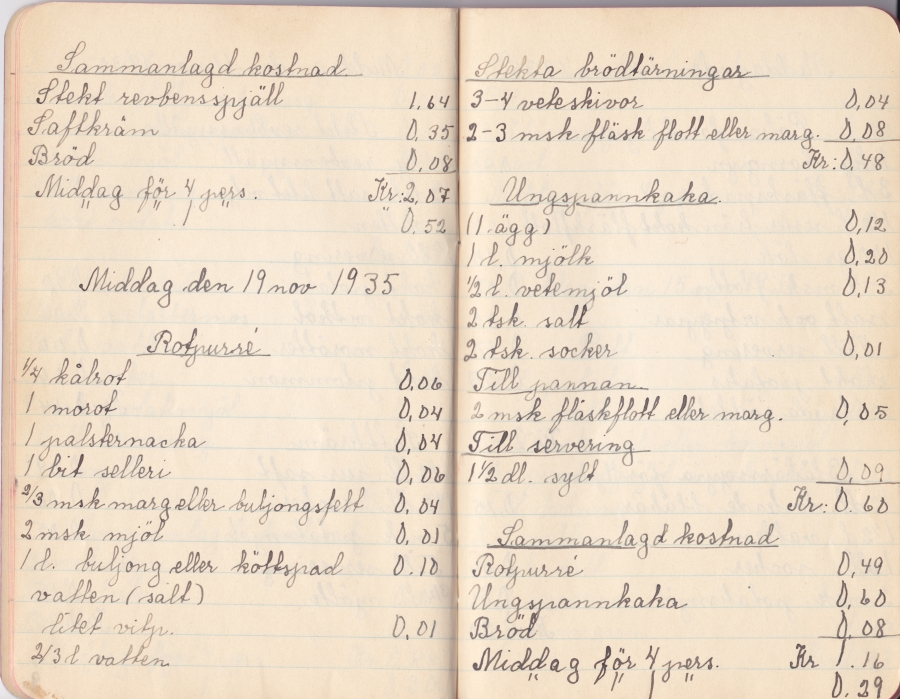 Sammanlagd kostnad.
Stekt revbensspjäll 1,64
Saftkräm 0.35
Bröd 0,08
Middag för 4 pers. Kr: 2,07
" " 1 " 0.52
Middag den 19 nov 1935
Rotpurré
1/4 kålrot 0,06
1 morot 0,04
1 palsternacka 0,04
1 bit selleri 0,06
2/3 msk marg eller buljongsfett 0,04
2 msk mjöl 0,01
1 l. buljong eller köttspad 0.10
vatten (salt)
litet vitp. 0,01
2/3 l vatten
Stekta brödtärningar
3-4 veteskivor 0,04
2-3 msk fläsk flott eller marg. 0,08
Kr: 0.48
Ungspannkaka.
(1 ägg) 0,12
1 l. mjölk 0,20
1/2 l. vetemjöl 0,13
2 tsk. salt
2 tsk. socker 0,01
Till pannan.
2 msk fläskflott eller marg. 0,05
Till servering
1 1/2 dl. sylt 0,09
Kr: 0.60
Sammanlagd kostnad
Rotpurré 0,49
Ungspannkaka 0,60
Bröd 0,08
Middag för 4 pers. Kr 1.16
" " 1 " 0.29